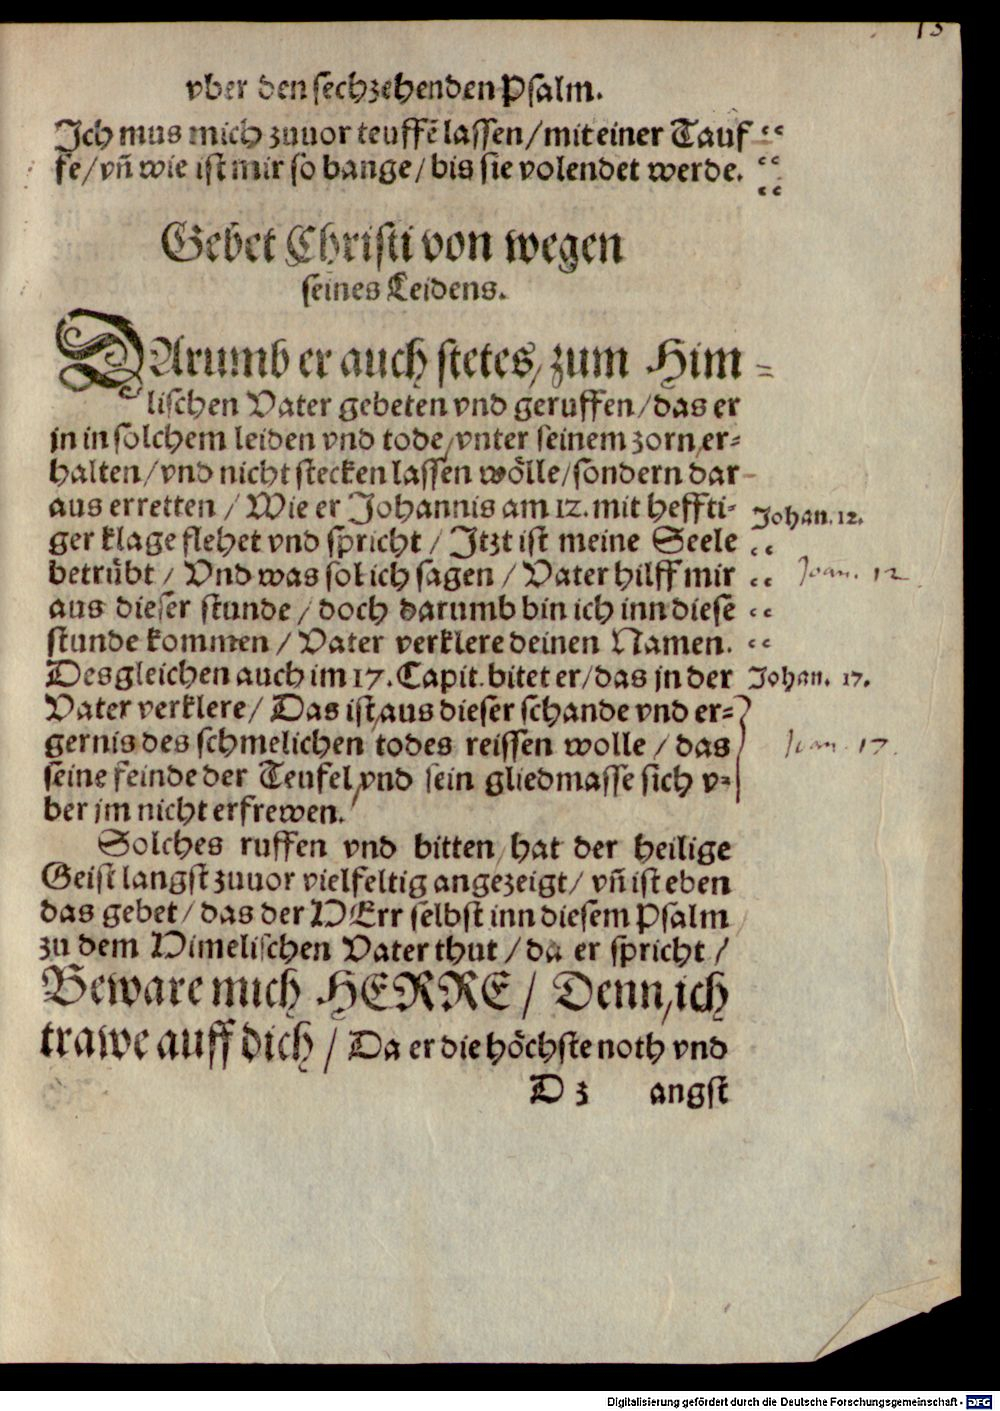 13
vber den sechzehenden Psalm.
Ich mus mich zuuor teuffē lassen/mit einer Tauf
fe/vñ wie ist mir so bange/bis sie volendet werde.
Gebet Christi von wegen
seines Leidens.
DArumb er auch stetes, zum Him-
lischen Vater gebeten vnd geruffen/das er
jn in solchem leiden vnd tode, vnter seinem zorn, er-
halten/vnd nicht stecken lassen wölle/sondern dar
aus erretten / Wie er Johannis am 12. mit heffti-
Johan. 12.
ger klage flehet vnd spricht / Itzt ist meine Seele
betrübt / Vnd was sol ich sagen / Vater hilff mir
Joan. 12
aus dieser stunde / doch darumb bin ich inn diese
stunde kommen / Vater verklere deinen Namen.
Desgleichen auch im 17. Capit. bitet er/das jn der
Johan. 17.
Vater verklere/ Das ist, aus dieser schande vnd er-
gernis des schmelichen todes reissen wolle / das
Joan. 17.
seine feinde der Teufel, vnd sein gliedmasse sich v-
ber jm nicht erfrewen.
Solches ruffen vnd bitten, hat der heilige
Geist langst zuuor vielfeltig angezeigt/ vñ ist eben
das gebet/ das der HErr selbst inn diesem Psalm
zu dem Himelischen Vater thut / da er spricht /
Beware mich HERRE / Denn, ich
trawe auff dich / Da er die höchste noth vnd
D 3 angst
Digitalisierung gefördert durch die Deutsche Forschungsgemeinschaft - DFG